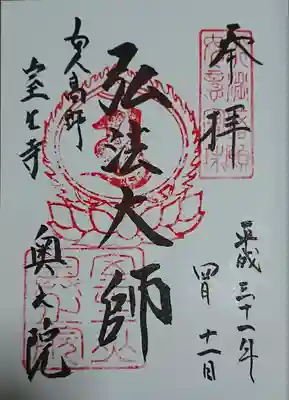 奉拝
平成三十一年
四月十一日
弘法大師
女人高野
室生寺
奥之院